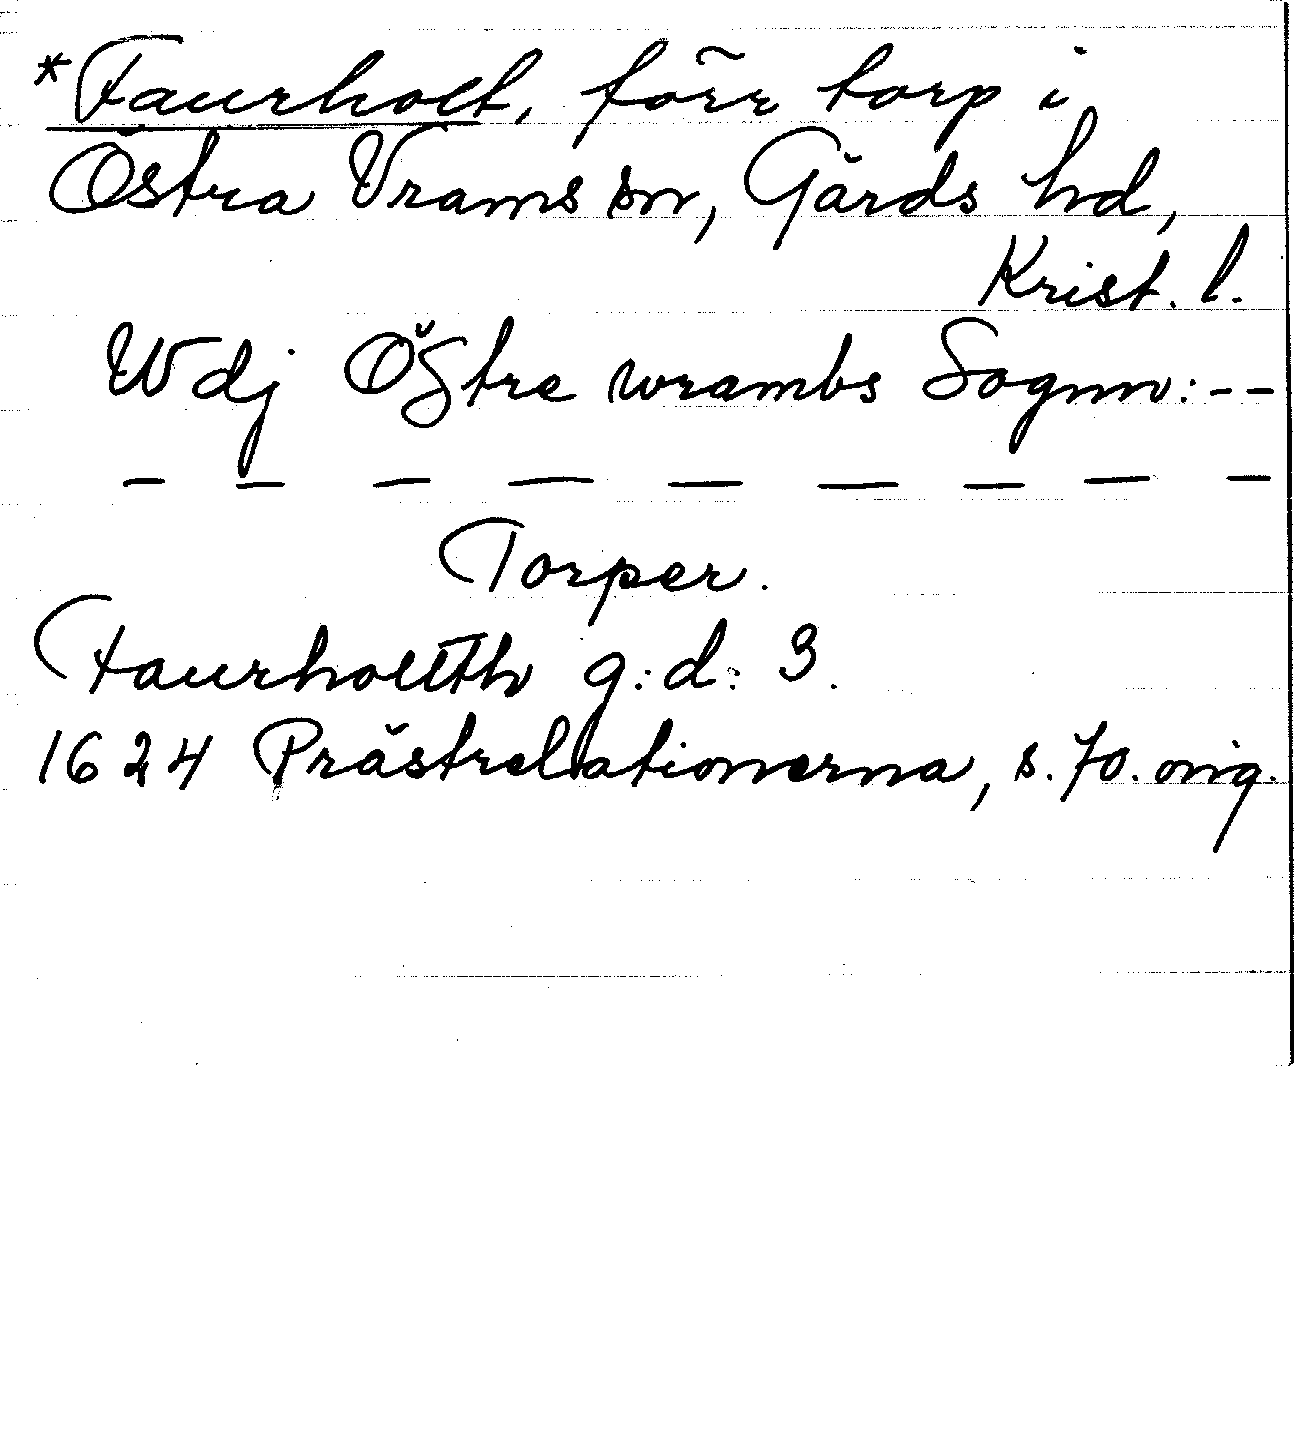 *Faurholt, förr torp i
Östra Vrams sn, Gärds hd,
Krist. l.
Wdj Østre wrambs Sognn:--
— — — — — — — — —
Torper.
Faurholtth g:d: 3.
1624 Prästrelationerna, s. 70. orig.